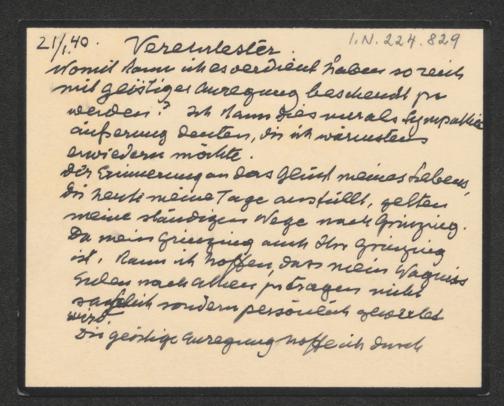 21/I.40. Verehrtester. I.N. 224.829
Womit kann ich es verdient haben so reich
mit geistiger Anregung beschenkt zu
werden? Ich kann dies nur als Sympathie
äußerung deuten, die ich wärmstens
erwiedern möchte.
Der Erinnerung an das Glück meines Lebens,
die heute meine Tage ausfüllt, gelten
meine ständigen Wege nach Grinzing.
Da mein Grinzing auch Ihr Grinzing
ist, kann ich hoffen, dass mein Wagniss
Eulen nach Athen zu tragen nicht
sachlich sondern persönlich gewertet
wird
Die geistige Anregung hoffe ich durch